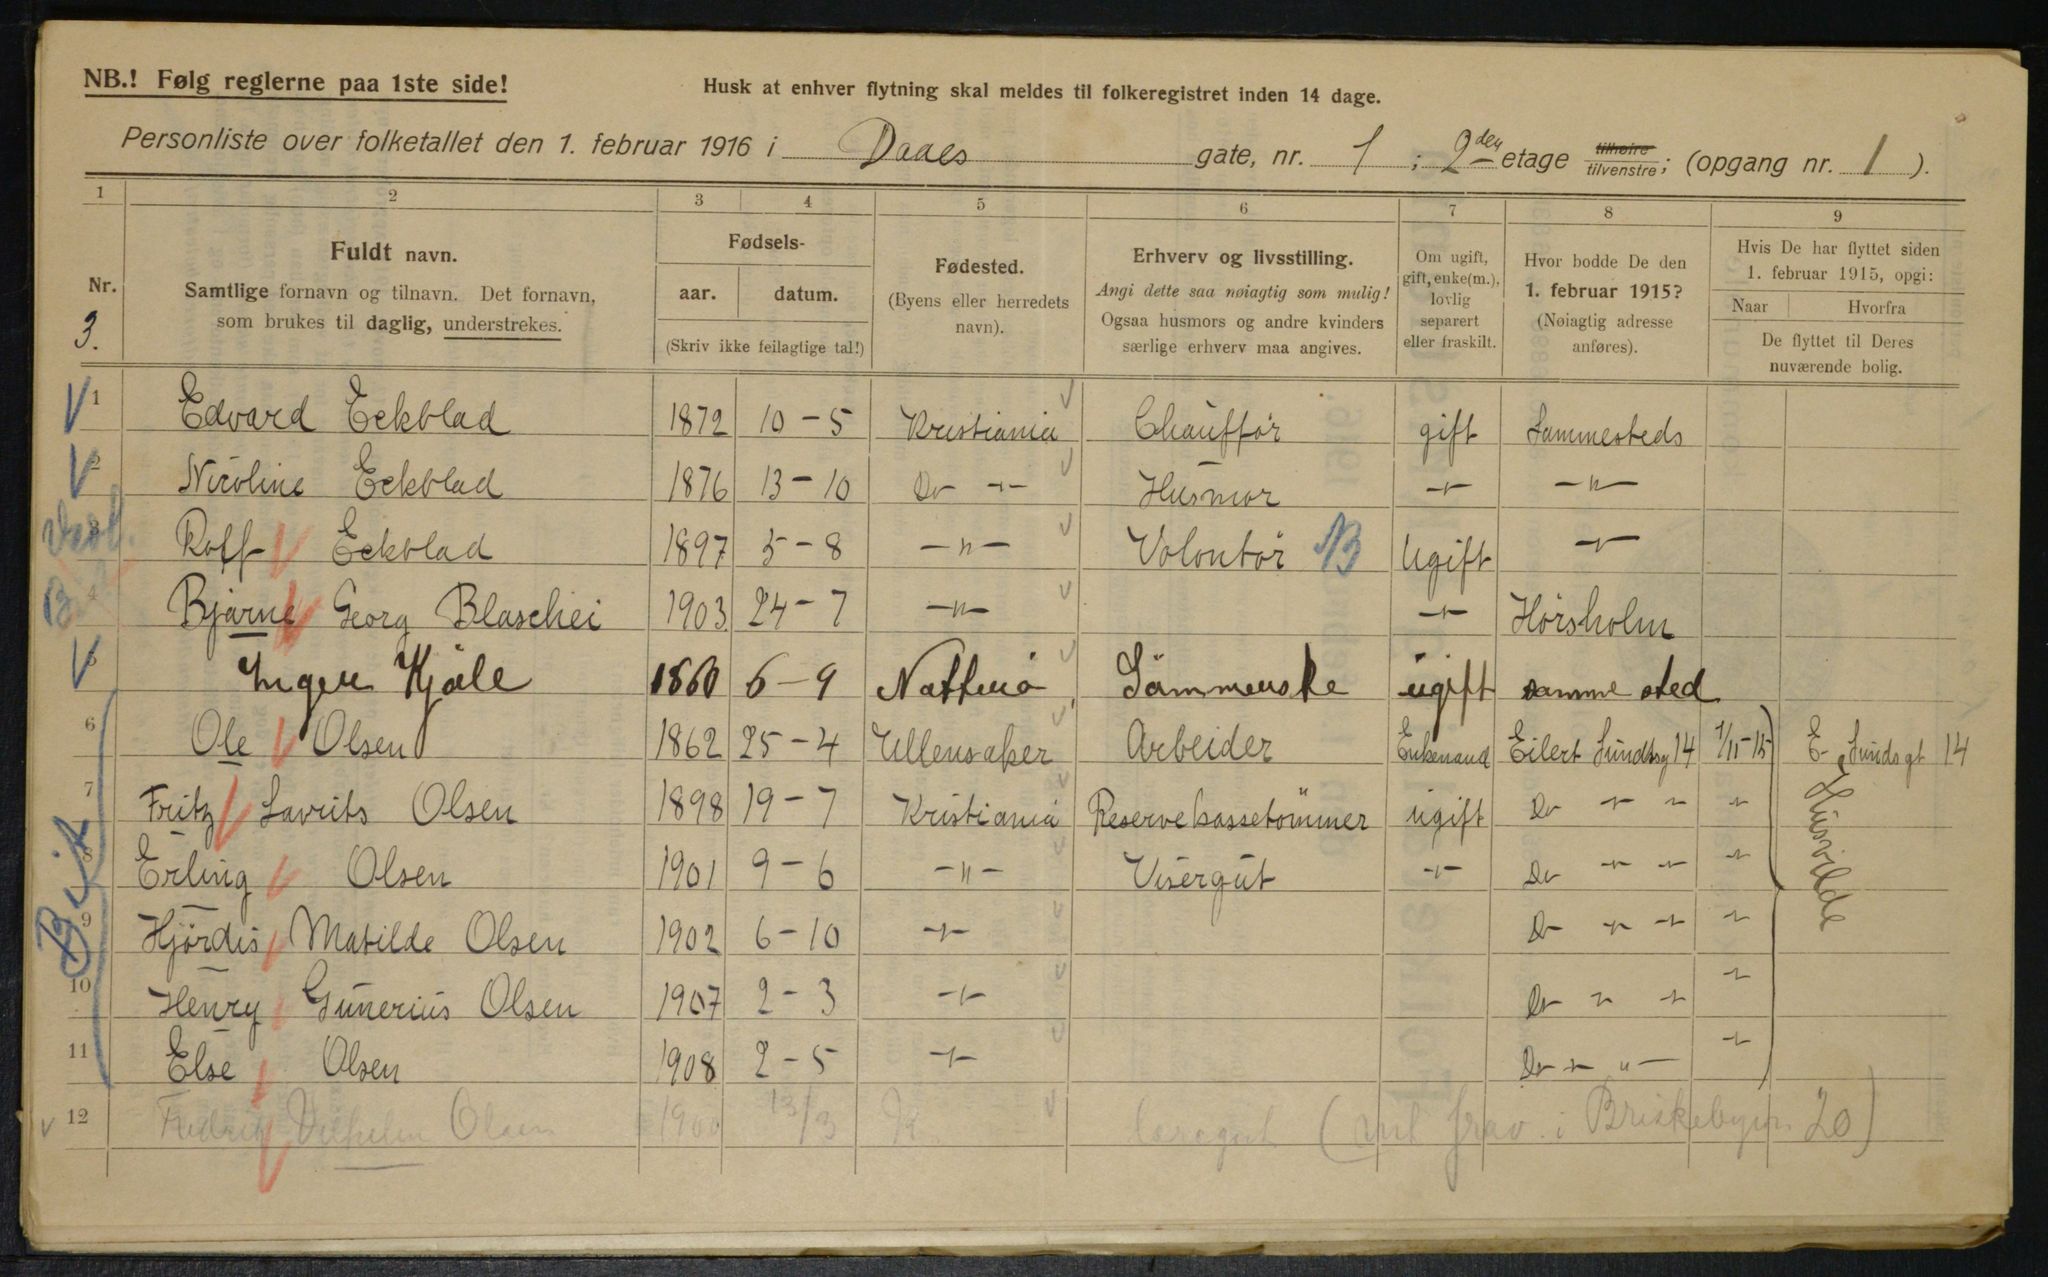 NB.! Følg reglerne paa 1ste side!
Husk at enhver flytning skal meldes til folkeregistret inden 14 dage.
Personliste over folketallet den 1. februar 1916 i Daaes gate, nr. 1; 2den etage tilhøire/tilvenstre; (opgang nr. 1).
1 2 3 4 5 6 7 8 9
Nr. 3.
Fuldt navn.
Samtlige fornavn og tilnavn. Det fornavn,
som brukes til daglig, understrekes.
Fødsels-
aar. datum.
(Skriv ikke feilagtige tal!)
Fødested.
(Byens eller herredets
navn).
Erhverv og livsstilling.
Angi dette saa nøiagtig som mulig!
Ogsaa husmors og andre kvinders
særlige erhverv maa angives.
Om ugift,
gift, enke(m.),
lovlig
separert
eller fraskilt.
Hvor bodde De den
1. februar 1915?
(Nøiagtig adresse
anføres).
Hvis De har flyttet siden
1. februar 1915, opgi:
Naar Hvorfra
De flyttet til Deres
nuværende bolig.
1 Edvard Eckblad 1872 10-5 Kristiania Chauffør gift Sammesteds
2 Nicoline Eckblad 1876 13-10 Do -"- Husmor -"- -"-
3 Rolf Eckblad 1897 5-8 -"- Volontør NB Ugift -"-
4 Bjarne Georg Blaschei 1903 24-7 -"- -"- Hørsholm
5 Inger Kjøle 1860 6-9 Sömmerske ugift samme sted
6 Ole Olsen 1862 25-4 Ullensaker Arbeider Enkemand Eilert Sundtsg 14 1/11-15 E. Sunds gt 14
7 Fritz Lavrits Olsen 1898 19-7 Kristiania Reservekassetömmer ugift Do " " " Husvilde
8 Erling Olsen 1901 9-6 -"- Visergut -"- Do " " "
9 Hjørdis Matilde Olsen 1902 6-10 -"- Do " " "
10 Henry Gunerius Olsen 1907 2-3 -"- Do " " "
11 Else Olsen 1908 2-5 -"- Do " " "
12 Fredrik Vilhelm Olsen 1900 13/3 K. i Briskebyvn 20)